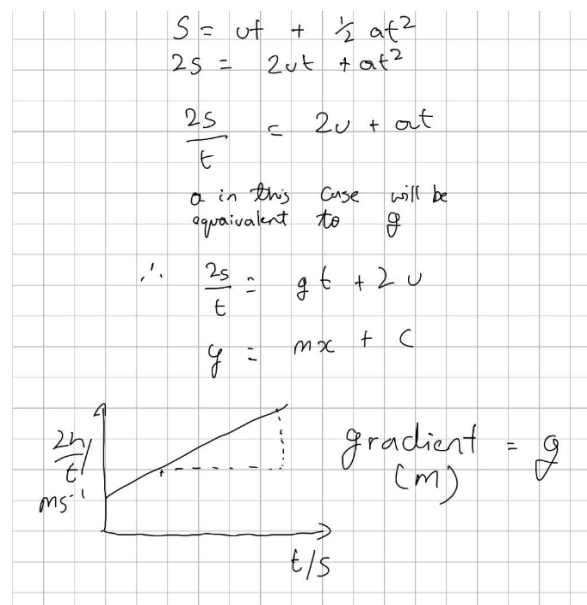 S = ut + ½ at²
2s = 2ut + at²
2s/t = 2u + at
a in this case will be
equaivalent to g
∴ 2s/t = gt + 2u
y = mx + c
2h/t / ms⁻¹
gradient = g
(m)
t/s